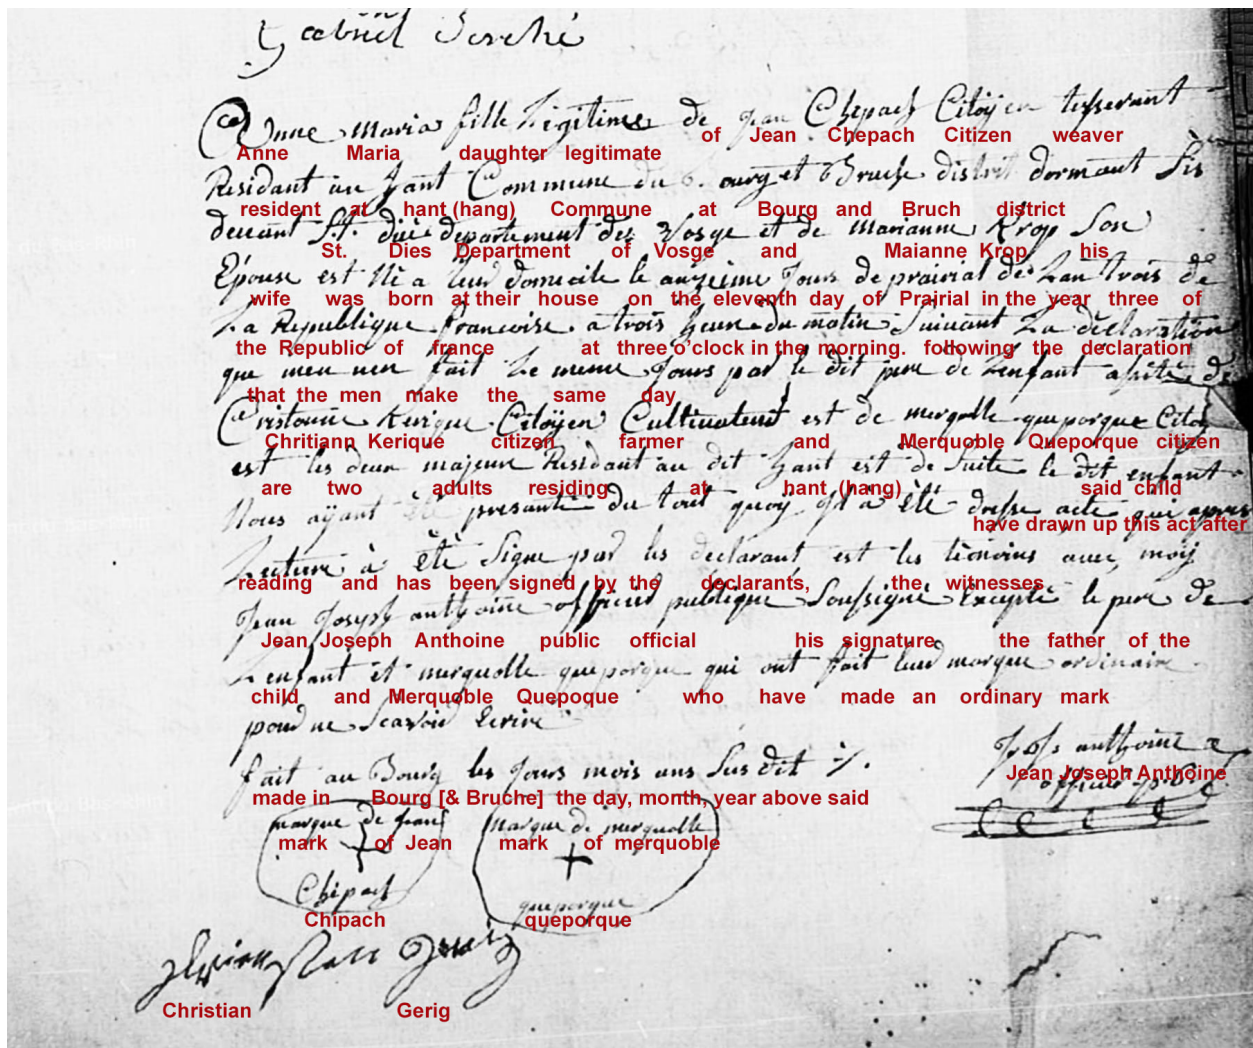 Gabriel Serché
Anne Maria fille Legitime de Jean Chepach Citoÿen tisserant
of Jean Chepach Citizen weaver
Anne Maria daughter legitimate
Residant au hant Commune du Bourg et Bruche distrit dormant
resident at hant (hang) Commune at Bourg and Bruch district
devant St. dieè departement des Vosge et de Marianne Krop Son
St. Dies Department of Vosge and Maianne Krop his
Epouse est Né a leur domicile le onzieme Jours de prairial de Lan trois de
wife was born at their house on the eleventh day of Prairial in the year three of
La Republique francoise a trois heure du matin Suivant La déclaration
the Republic of france at three o'clock in the morning. following the declaration
que fait le meme Jours par le dit pere de Lenfant asisté de
that the men make the same day
Cristianne Kerique Citoÿen Cultivateur est de merquolle queporque Citoy
Chritiann Kerique citizen farmer and Merquoble Queporque citizen
est les deux majeure Residant au dit hant est de Suite le dit enfant
are two adults residing at hant (hang) said child
Nous aÿant été presanté du tout quoÿ Jl a été dresse acte qui apres
have drawn up this act after
Lecture à été Signe par les declarant est les témoins avec moÿ
reading and has been signed by the declarants, the witnesses
Jean Joseph anthoine officier publique Soussigné Excepté le pere de
Jean Joseph Anthoine public official his signature the father of the
Lenfant et merquolle queporque qui ont fait leur marque ordinaire
child and Merquoble Quepoque who have made an ordinary mark
pour ne Scavoir Ecrire
fait au Bourg les Jours mois ans Sus dit
J. Js. anthoine
Jean Joseph Anthoine
officier
made in Bourg [& Bruche] the day, month, year above said
marque de Jean marque de merquolle
mark of Jean mark of merquoble
Chipach queporque
Chipach queporque
Christian Gerig